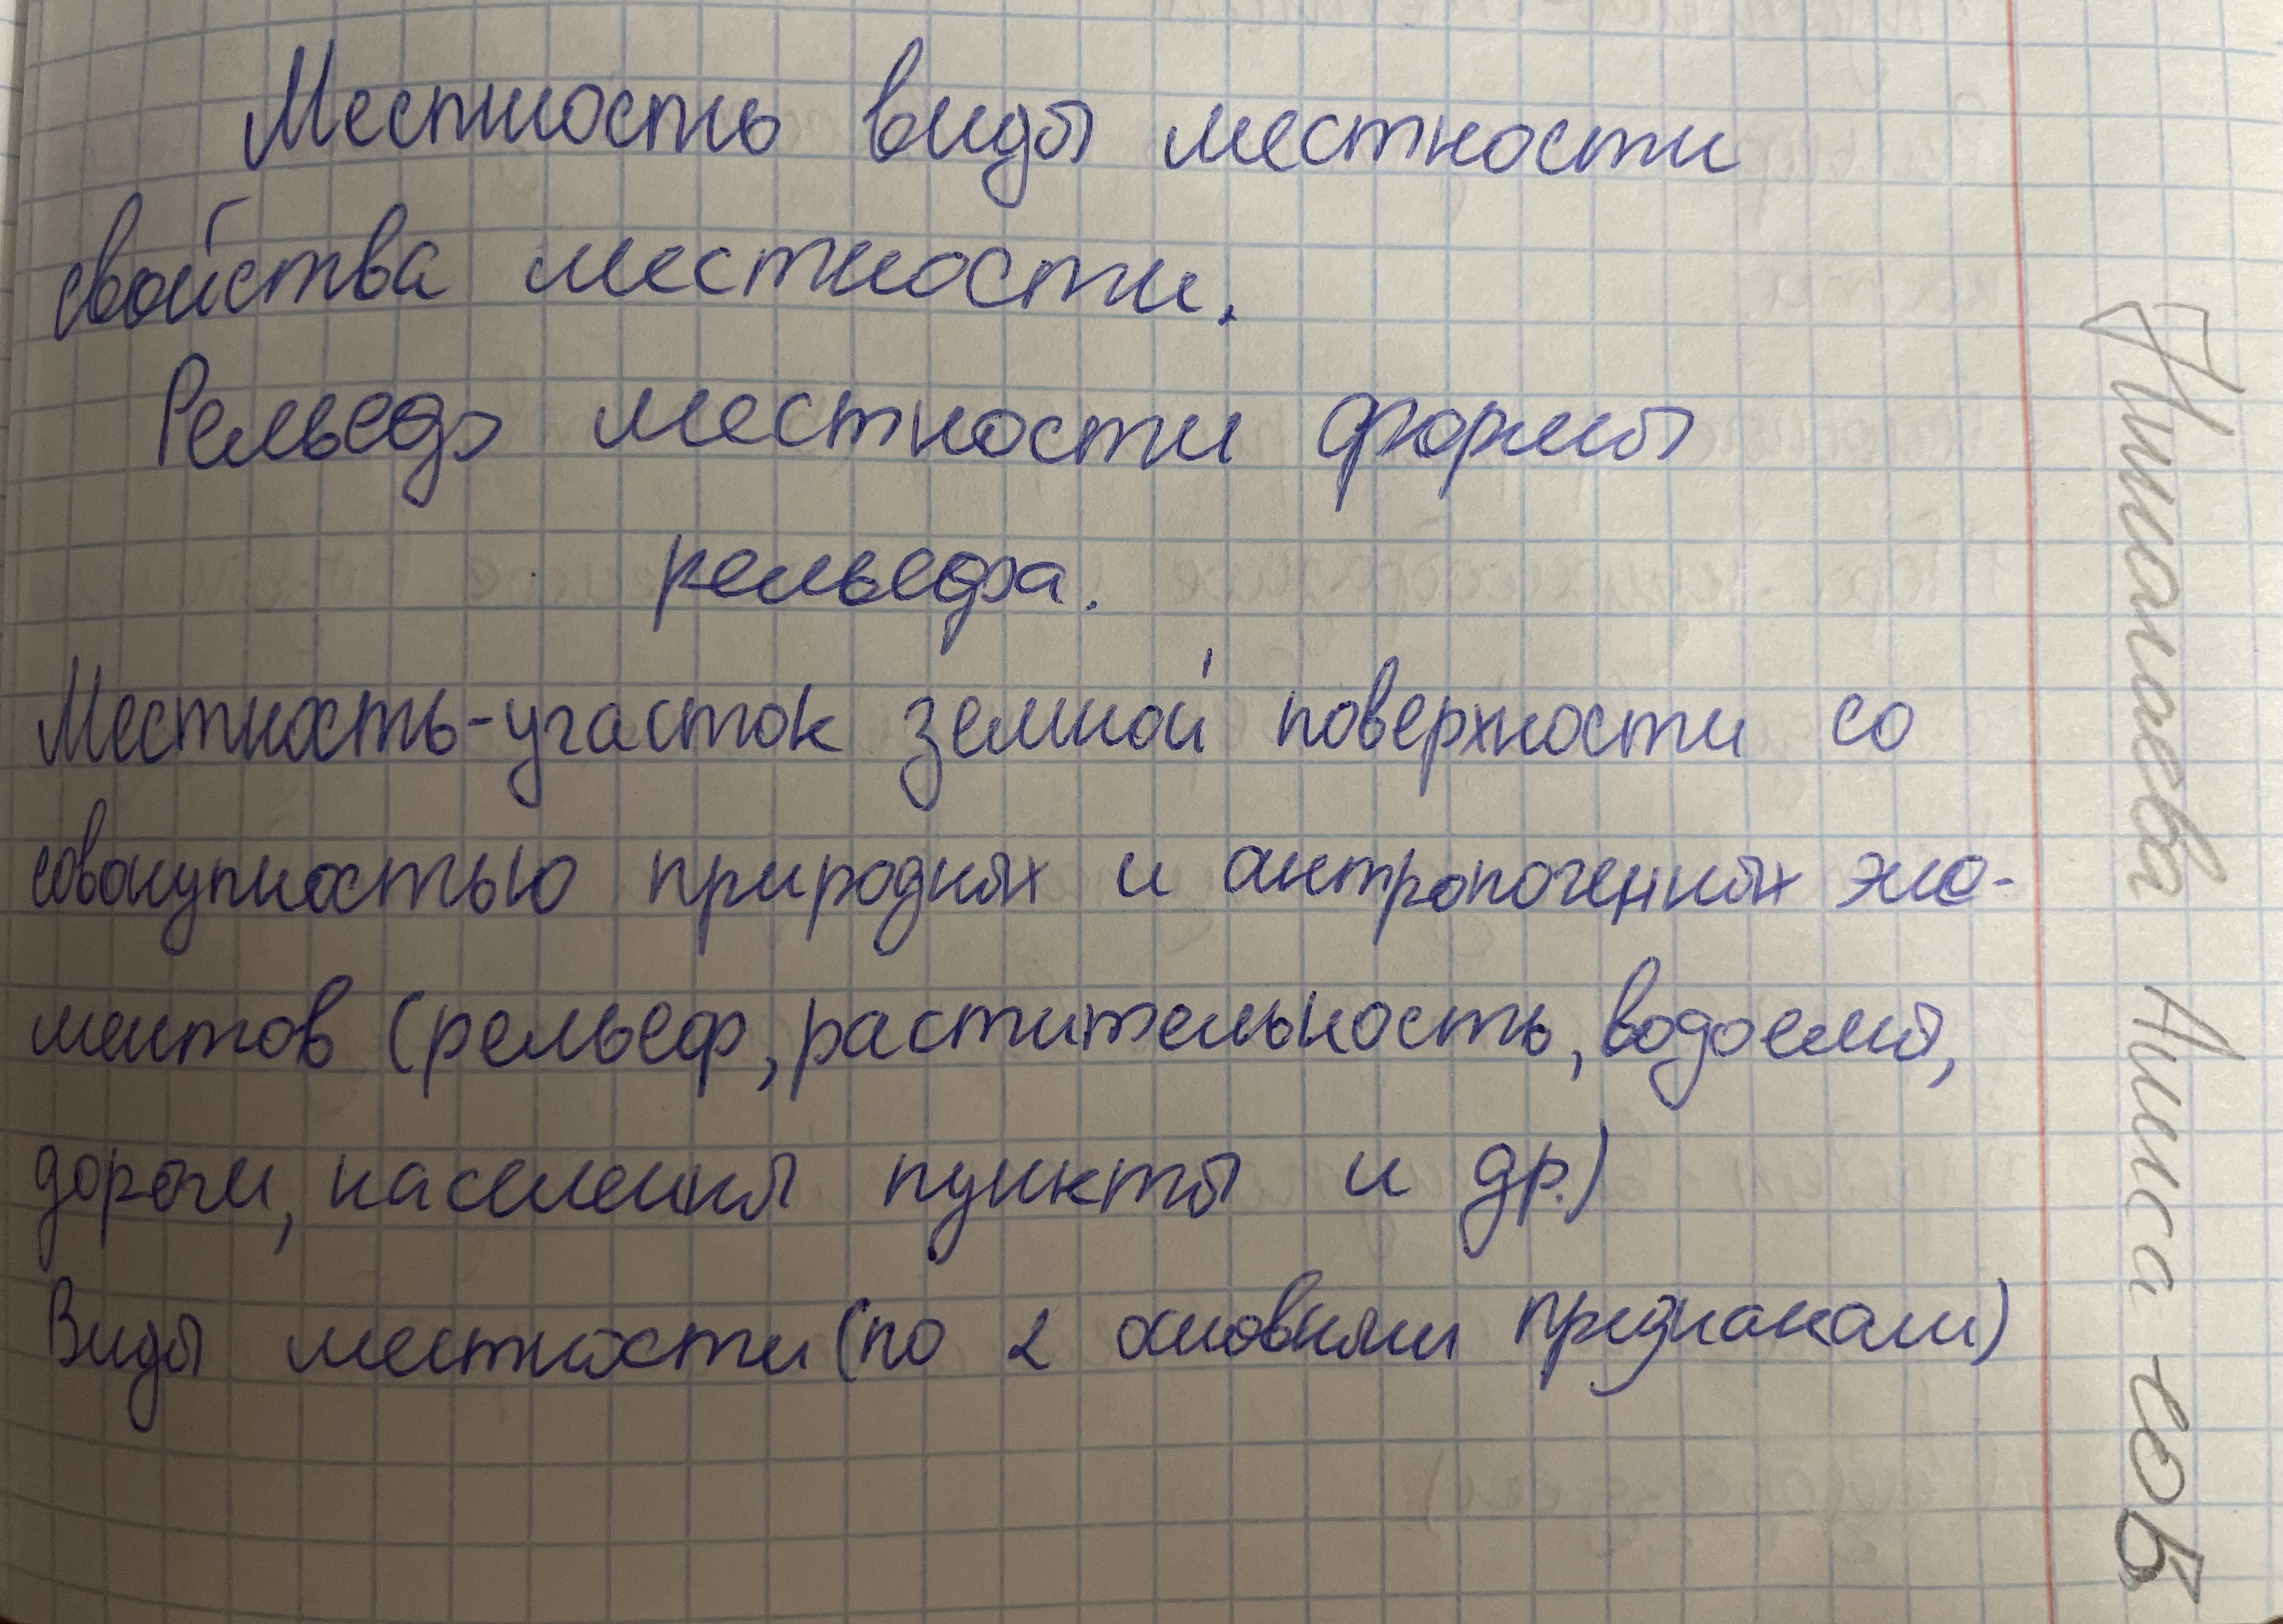 Местность виды местности
свойства местности.
Рельеф местности формы
рельефа.
Местность-участок земной поверхности со
совокупностью природных и антропогенных эле-
ментов (рельеф, растительность, водоемы,
дороги, населенны пункты и др.)
Виды местности (по 2 основными признакам)
Алиса